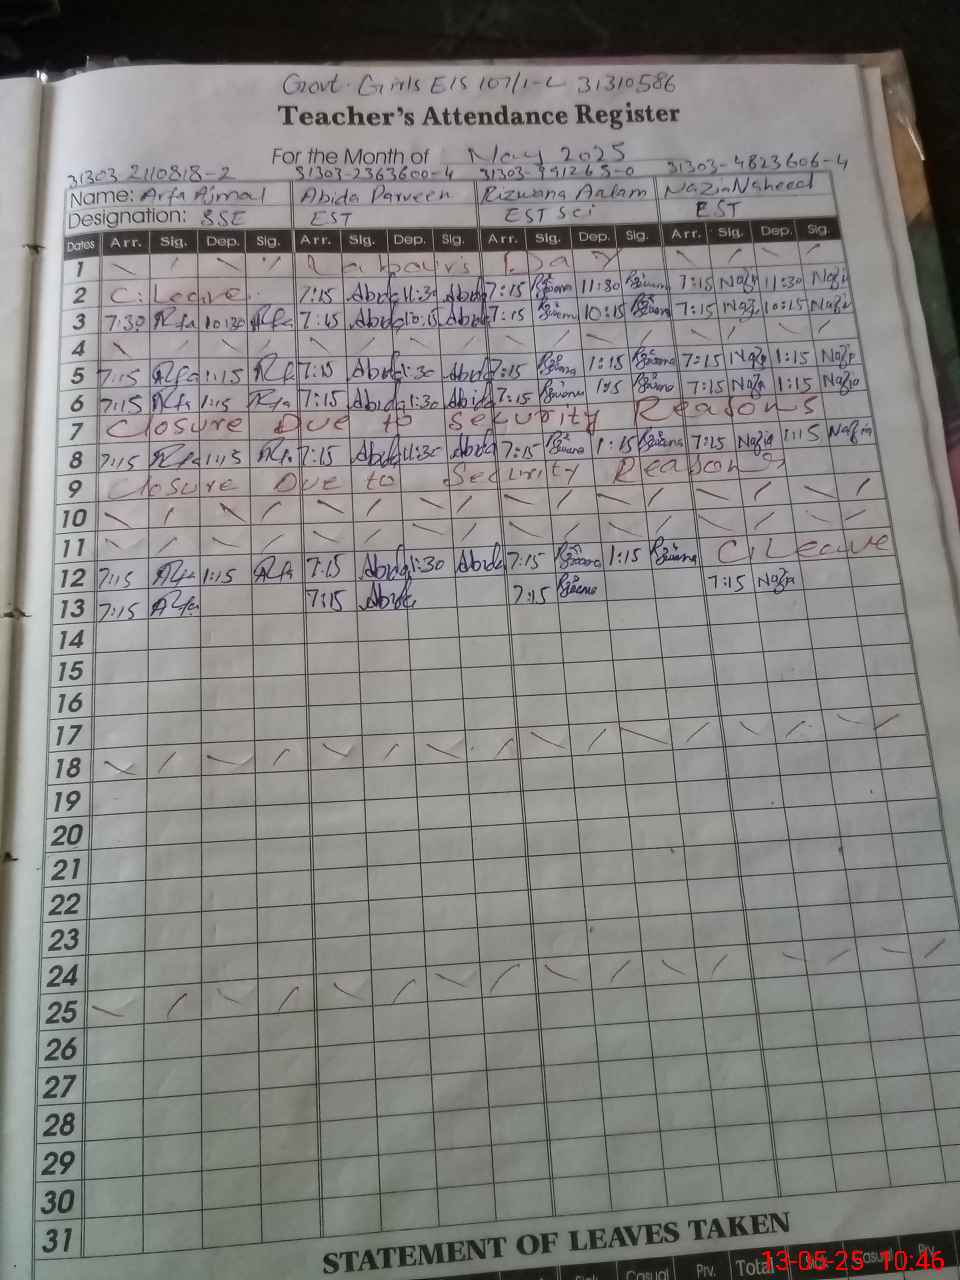 Govt. Girls E/S 107/1-L 31310586
Teacher's Attendance Register
For the Month of May 2025
31303 2110818-2 31303-2363600-4 31303-991265-0 31303-4823606-4
Name: Arfa Ajmal Abida Parveen Rizwana Aalam Nazia Naheed
Designation: SSE EST EST Sci EST
Dates Arr. Sig. Dep. Sig. Arr. Sig. Dep. Sig. Arr. Sig. Dep. Sig. Arr. Sig. Dep. Sig.
1 Labour's Day
2 C. Leave 7:15 Abida 11:30 Abida 7:15 11:30 7:15 Nazia 11:30 Nazia
3 7:30 Arfa 10:30 Arfa 7:15 Abida 10:15 Abida 7:15 10:15 7:15 Nazia 10:15 Nazia
4
5 7:15 Arfa 1:15 Arfa 7:15 Abida 1:30 Abida 7:15 1:15 7:15 Nazia 1:15 Nazia
6 7:15 Arfa 1:15 Arfa 7:15 Abida 1:30 Abida 7:15 7:15 Nazia 1:15 Nazia
7 Closure Due to Security Reasons
8 7:15 Arfa 1:15 Arfa 7:15 Abida 7:15 1:15 7:15 Nazia 1:15 Nazia
9 Closure Due to Security Reasons
10
11
12 7:15 Arfa 1:15 Arfa 7:15 Abida 1:30 Abida 7:15 1:15 C. Leave
13 7:15 Arfa 7:15 Abida 7:15 7:15 Nazia
14
15
16
17
18
19
20
21
22
23
24
25
26
27
28
29
30
31
STATEMENT OF LEAVES TAKEN
Casual Prv. Total Casual Prv.
13-05-25 10:46